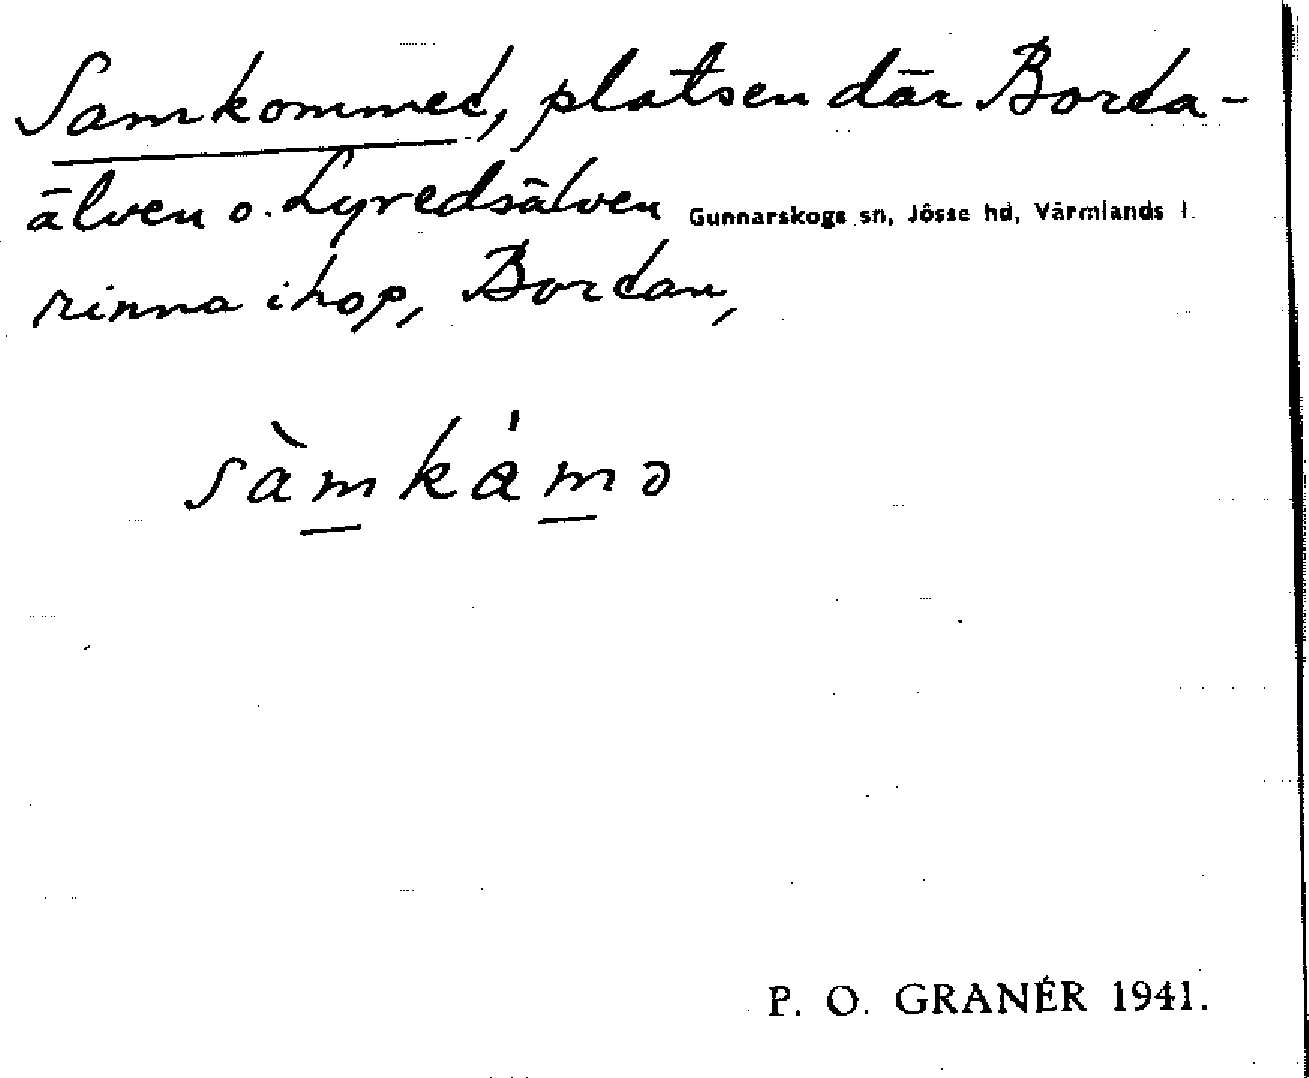 Samkommed, platsen där Borda-
älven o. Lyredsälven
Gunnarskogs sn, Jösse hd, Värmlands l.
rinna ihop, Bordan,
sàmkámə
P. O. GRANÉR 1941.